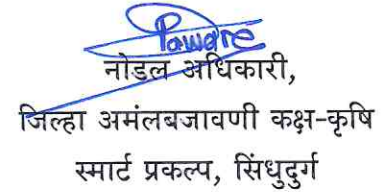 Paware
नोडल अधिकारी,
जिल्हा अमंलबजावणी कक्ष-कृषि
स्मार्ट प्रकल्प, सिंधुदुर्ग